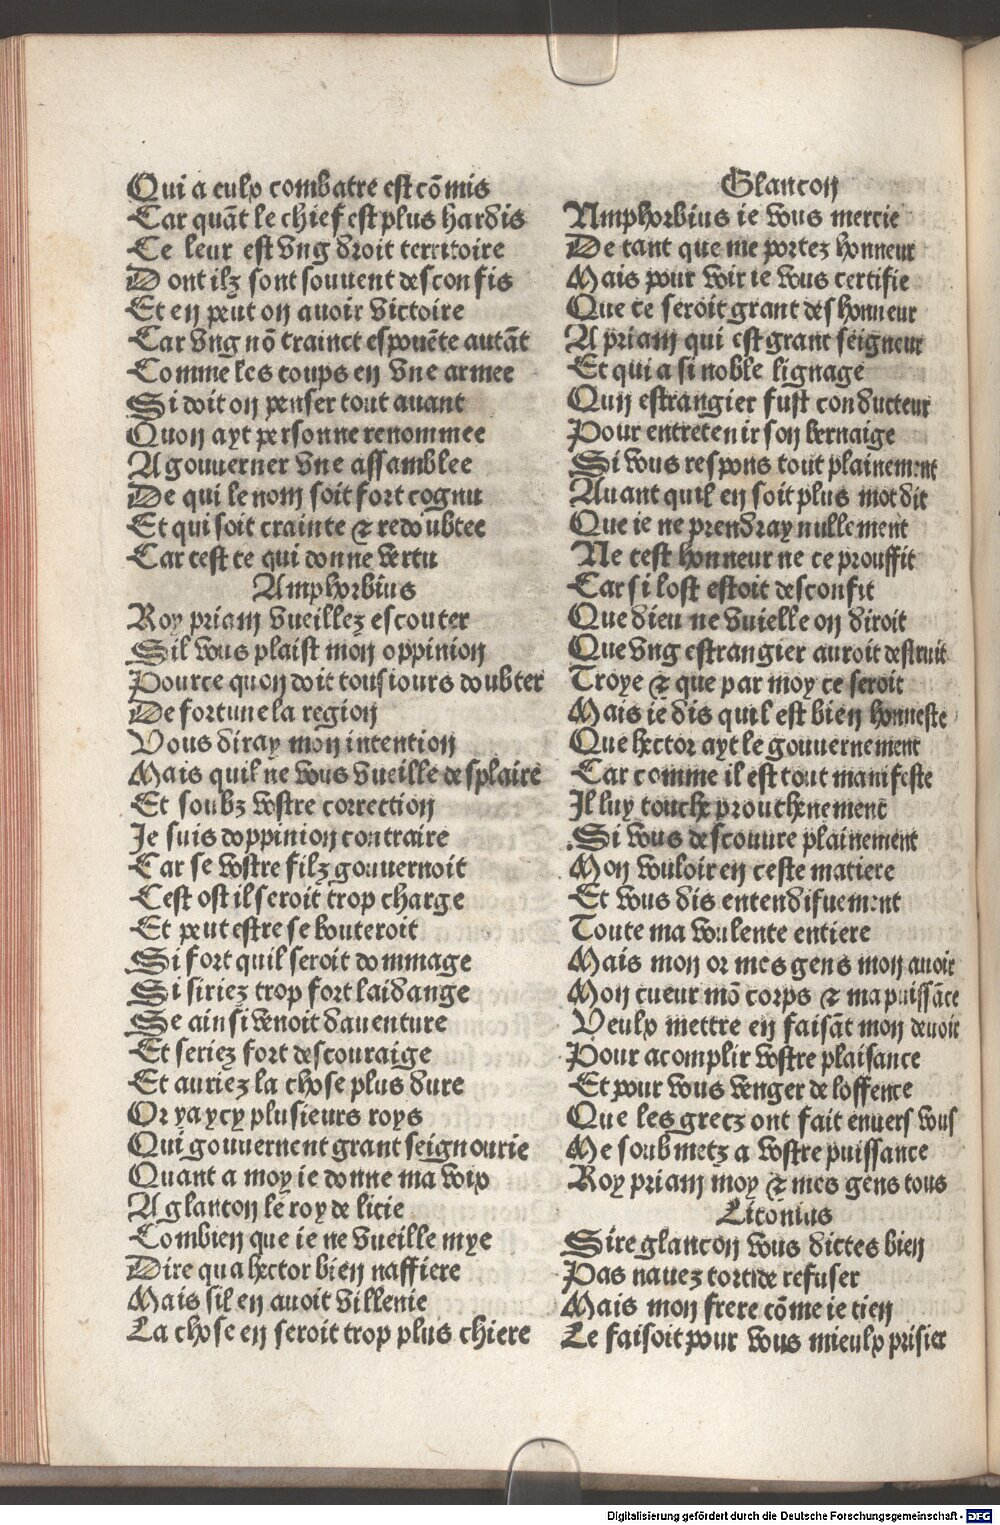 Qui a eulx combatre est cõmis
Car quãt le chief est plus hardis
Ce leur est vng droit territoire
Dont ilz sont souuent desconfis
Et en peut on auoir victoire
Car vng nõ trainct espouẽte autãt
Comme les coups en vne armee
Si doit on penser tout auant
Quon ayt personne renommee
A gouuerner vne assamblee
De qui le nom soit fort cognu
Et qui soit crainte & redoubtee
Car cest ce qui donne vertu
Amphorbius
Roy priam vueillez escouter
Sil vous plaist mon oppinion
Pource quon doit tousiours doubter
De fortune la region
Vous diray mon intention
Mais quil ne vous vueille desplaire
Et soubz vostre correction
Je suis doppinion contraire
Car se vostre filz gouuernoit
Cest ost il seroit trop charge
Et peut estre se bouteroit
Si fort quil seroit dommage
Si siriez trop fort laidange
Se ainsi venoit dauenture
Et seriez fort descouraige
Et auriez la chose plus dure
Or ya ycy plusieurs roys
Qui gouuernent grant seignourie
Quant a moy ie donne ma voix
A glancon le roy de licie
Combien que ie ne vueille mye
Dire qua hector bien naffiere
Mais sil en auoit villenie
La chose en seroit trop plus chiere
Glancon
Amphorbius ie vous mercie
De tant que me portez honneur
Mais pour voir ie vous certifie
Que ce seroit grant deshonneur
A priam qui est grant seigneur
Et qui a si noble lignage
Qun estrangier fust conducteur
Pour entretenir son bernaige
Si vous respons tout plainement
Auant quil en soit plus mot dit
Que ie ne prendray nullement
Ne cest honneur ne ce prouffit
Car si lost estoit desconfit
Que dieu ne vuielle on diroit
Que vng estrangier auroit destruit
Troye & que par moy ce seroit
Mais ie dis quil est bien honneste
Que hector ayt le gouuernement
Car comme il est tout manifeste
Il luy touche prouchenement
Si vous descouure plainement
Mon vouloir en ceste matiere
Et vous dis entendifuement
Toute ma voulente entiere
Mais mon or mes gens mon auoir
Mon cueur mõ corps & ma puissãce
Veulx mettre en faisãt mon deuoir
Pour acomplir vostre plaisance
Et pour vous venger de loffence
Que les grecz ont fait enuers vous
Me soubmetz a vostre puissance
Roy priam moy & mes gens tous
Litonius
Sire glancon vous dictes bien
Pas nauez tort de refuser
Mais mon frere cõme ie tien
Le faisoit pour vous mieulx prisier
Digitalisierung gefördert durch die Deutsche Forschungsgemeinschaft - DFG